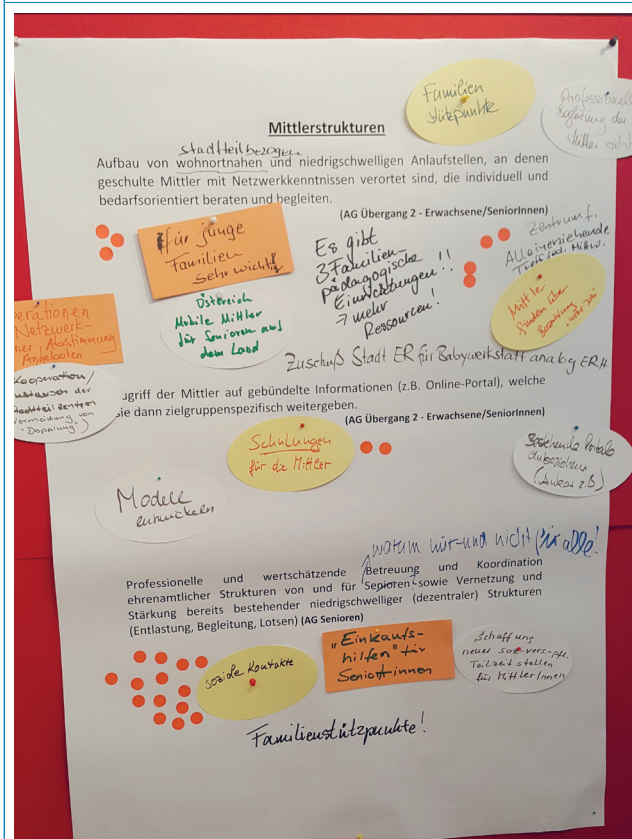 Familien
stützpunkte
Professionelle
Begleitung der
Mittler
Mittlerstrukturen
stadtteilbezogen
Aufbau von wohnortnahen und niedrigschwelligen Anlaufstellen, an denen
geschulte Mittler mit Netzwerkkenntnissen verortet sind, die individuell und
bedarfsorientiert beraten und begleiten.
(AG Übergang 2 - Erwachsene/SeniorInnen)
für junge
Familien
sehr wichtig
Es gibt
3 Familien-
pädagogische
Einrichtungen!!
→ mehr
Ressourcen!
Zentrum f.
Alleinerziehende
Treff
Mittler
finden über
Österreich
Mobile Mittler
für Senioren auf
dem Land
perationen
Netzwerk-
ner, Abstimmung
Angeboten
Zuschuß Stadt ER für Babywerkstatt analog ERH
Kooperation/
Austausch der
Stadtteilzentren
Vermeidung von
"Dopplung")
ugriff der Mittler auf gebündelte Informationen (z.B. Online-Portal), welche
ie dann zielgruppenspezifisch weitergeben.
(AG Übergang 2 - Erwachsene/SeniorInnen)
Schulungen
für die Mittler
Bestehende Portale
(z.B)
Modell
entwickeln
warum nur - und nicht für alle!
Professionelle und wertschätzende Betreuung und Koordination
ehrenamtlicher Strukturen von und für Senioren sowie Vernetzung und
Stärkung bereits bestehender niedrigschwelliger (dezentraler) Strukturen
(Entlastung, Begleitung, Lotsen) (AG Senioren)
soziale Kontakte
"Einkaufs-
hilfen" für
Seniorinnen
Schaffung
neuer soz.vers.-pfl.
Teilzeitstellen
für MittlerInnen
Familienstützpunkte!